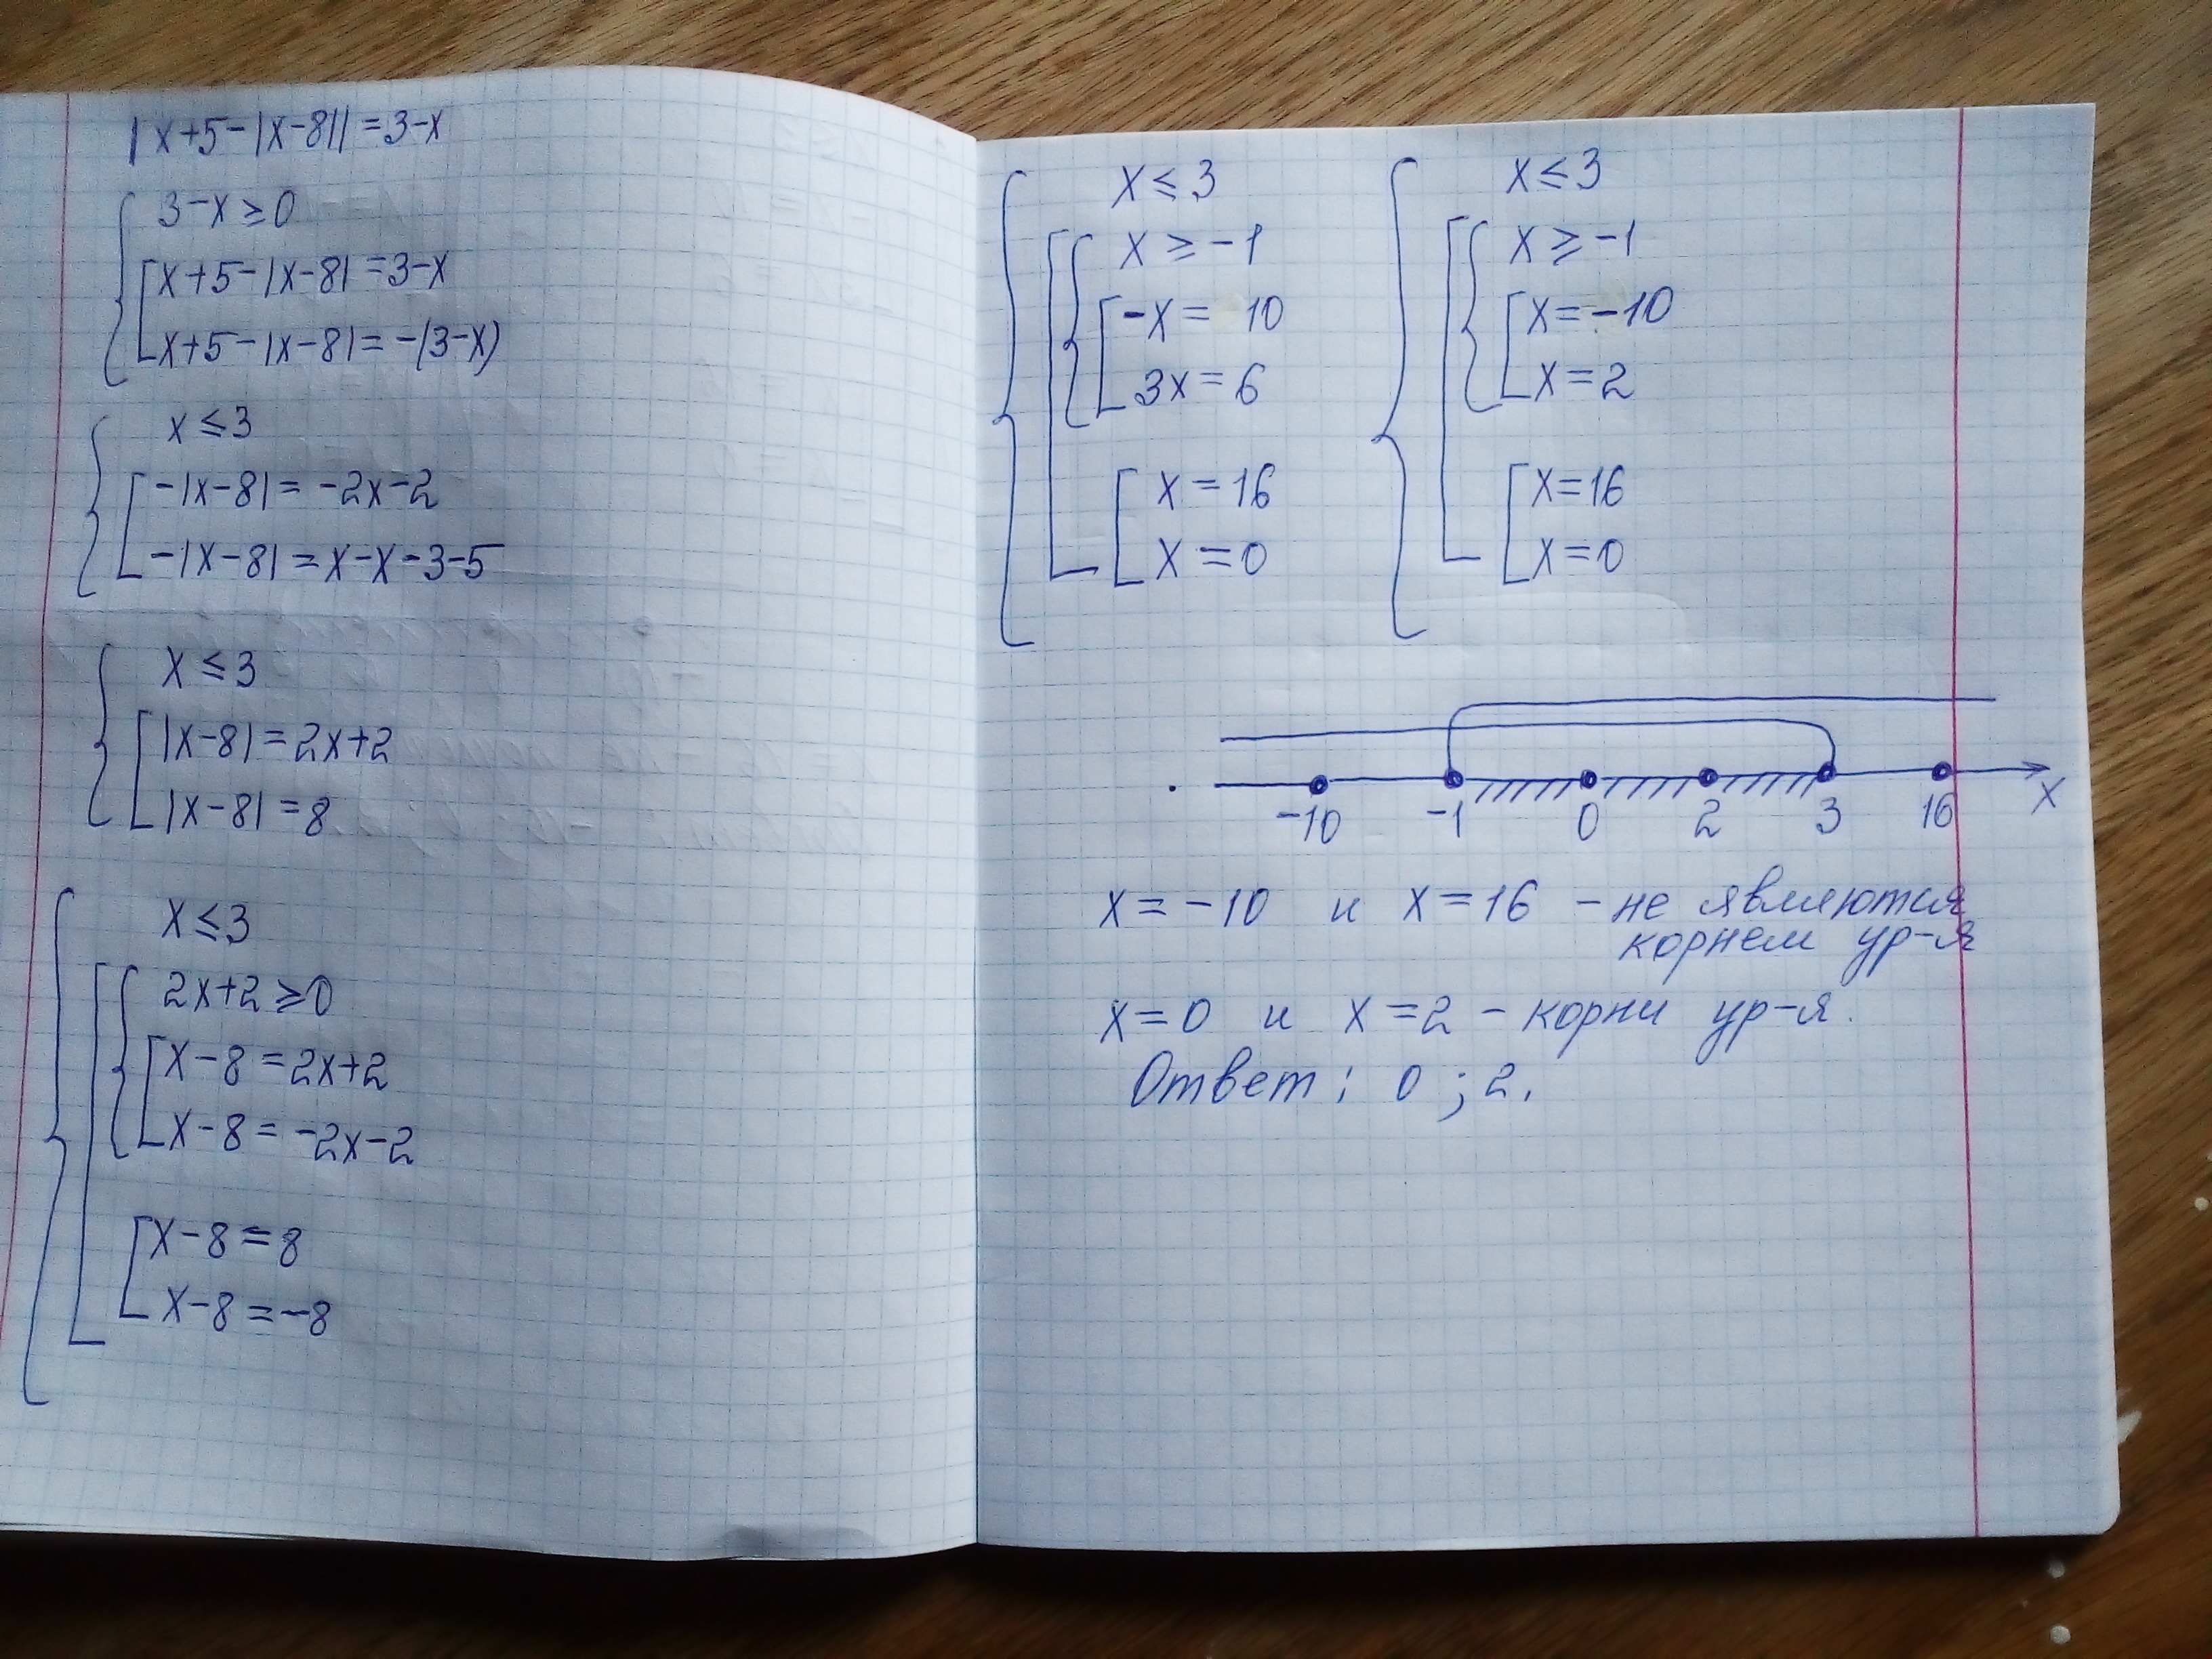 |x+5-|x-8||=3-x
3-x≥0
x+5-|x-8|=3-x
x+5-|x-8|=-(3-x)
x≤3
-|x-8|=-2x-2
-|x-8|=x-x-3-5
x≤3
|x-8|=2x+2
|x-8|=8
x≤3
2x+2≥0
x-8=2x+2
x-8=-2x-2
x-8=8
x-8=-8
x≤3
x≥-1
-x=10
3x=6
x=16
x=0
x≤3
x≥-1
x=-10
x=2
x=16
x=0
-10 -1 0 2 3 16 x
x=-10 и x=16 - не являются
корнем ур-я
x=0 и x=2 - корни ур-я.
Ответ: 0; 2.